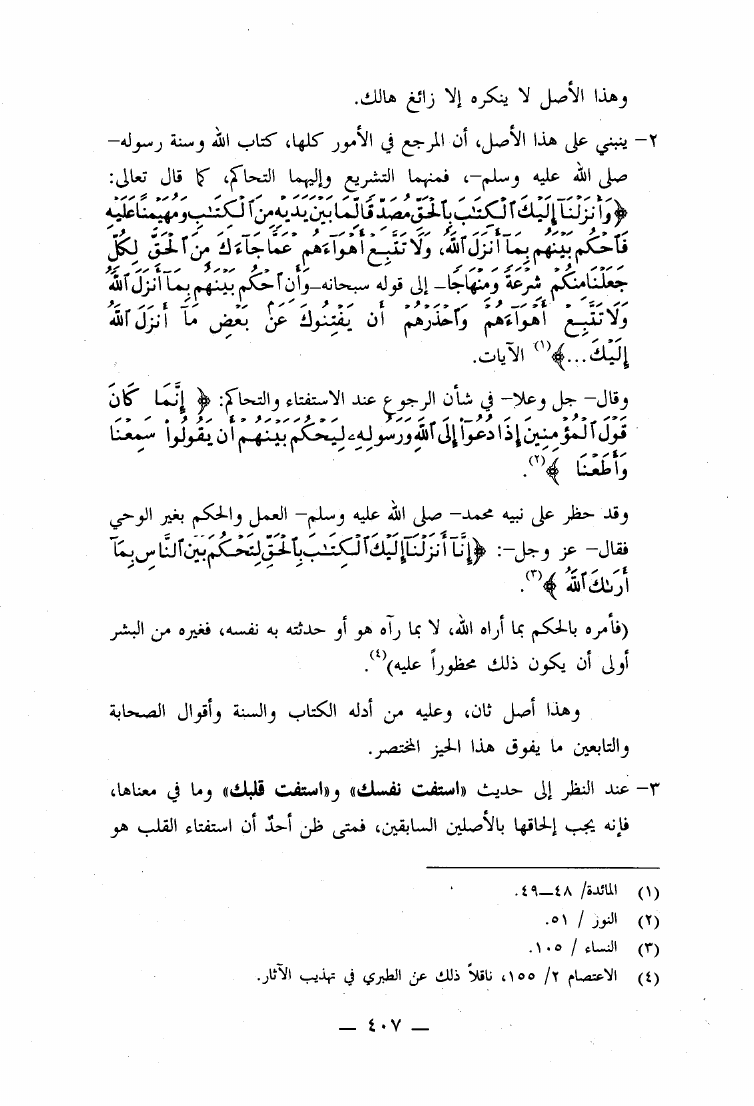 وهذا الأصل لا ينكره إلا زائغ هالك.
٢- ينبني على هذا الأصل، أن المرجع في الأمور كلها، كتاب الله وسنة رسوله-
صلى الله عليه وسلم-، فمنهما التشريع وإليهما التحاكم، كما قال تعالى:
﴿وَأَنزَلْنَآ إِلَيْكَ ٱلْكِتَٰبَ بِٱلْحَقِّ مُصَدِّقًا لِّمَا بَيْنَ يَدَيْهِ مِنَ ٱلْكِتَٰبِ وَمُهَيْمِنًا عَلَيْهِ
فَٱحْكُم بَيْنَهُم بِمَآ أَنزَلَ ٱللَّهُ، وَلَا تَتَّبِعْ أَهْوَآءَهُمْ عَمَّا جَآءَكَ مِنَ ٱلْحَقِّ لِكُلٍّ
جَعَلْنَا مِنكُمْ شِرْعَةً وَمِنْهَاجًا_ إلى قوله سبحانه_وَأَنِ ٱحْكُم بَيْنَهُم بِمَآ أَنزَلَ ٱللَّهُ
وَلَا تَتَّبِعْ أَهْوَآءَهُمْ وَٱحْذَرْهُمْ أَن يَفْتِنُوكَ عَنْ بَعْضِ مَآ أَنزَلَ ٱللَّهُ
إِلَيْكَ...﴾(١) الآيات.
وقال- جل وعلا- في شأن الرجوع عند الاستفتاء والتحاكم: ﴿ إِنَّمَا كَانَ
قَوْلَ ٱلْمُؤْمِنِينَ إِذَا دُعُوٓا۟ إِلَى ٱللَّهِ وَرَسُولِهِۦ لِيَحْكُمَ بَيْنَهُمْ أَن يَقُولُوا۟ سَمِعْنَا
وَأَطَعْنَا ﴾(٢).
وقد حظر على نبيه محمد- صلى الله عليه وسلم- العمل والحكم بغير الوحي
فقال- عز وجل-: ﴿إِنَّآ أَنزَلْنَآ إِلَيْكَ ٱلْكِتَٰبَ بِٱلْحَقِّ لِتَحْكُمَ بَيْنَ ٱلنَّاسِ بِمَآ
أَرَىٰكَ ٱللَّهُ ﴾(٣).
(فأمره بالحكم بما أراه الله، لا بما رآه هو أو حدثته به نفسه، فغيره من البشر
أولى أن يكون ذلك محظوراً عليه)(٤).
وهذا أصل ثان، وعليه من أدله الكتاب والسنة وأقوال الصحابة
والتابعين ما يفوق هذا الحيز المختصر.
٣- عند النظر إلى حديث «استفت نفسك» و«استفت قلبك» وما في معناها،
فإنه يجب إلحاقها بالأصلين السابقين، فمتى ظن أحدٌ أن استفتاء القلب هو
(١) المائدة/ ٤٨_٤٩.
(٢) النور / ٥١.
(٣) النساء / ١٠٥.
(٤) الاعتصام ٢/ ١٥٥، ناقلاً ذلك عن الطبري في تهذيب الآثار.
_ ٤٠٧ _